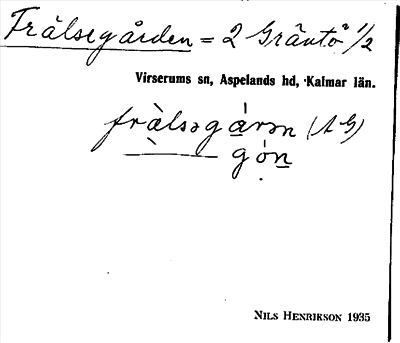 Frälsegården = 2 Gräntö 1/2
Virserums sn, Aspelands hd, Kalmar län.
frälsəgɑ̀rən (A G)
gón
NILS HENRIKSON 1935